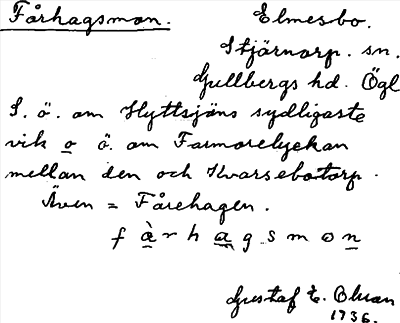 Fårhagsmon. Elmesbo.
Stjärnorp. sn.
Gullbergs hd. Ögl
S. ö. om Hyttsjöns sydligaste
vik o ö. om Farmorelyckan
mellan den och Kvarsebotorp.
Även = Fårehagen.
f à r h a g s m o n
Gustaf E. Olsson
1936.